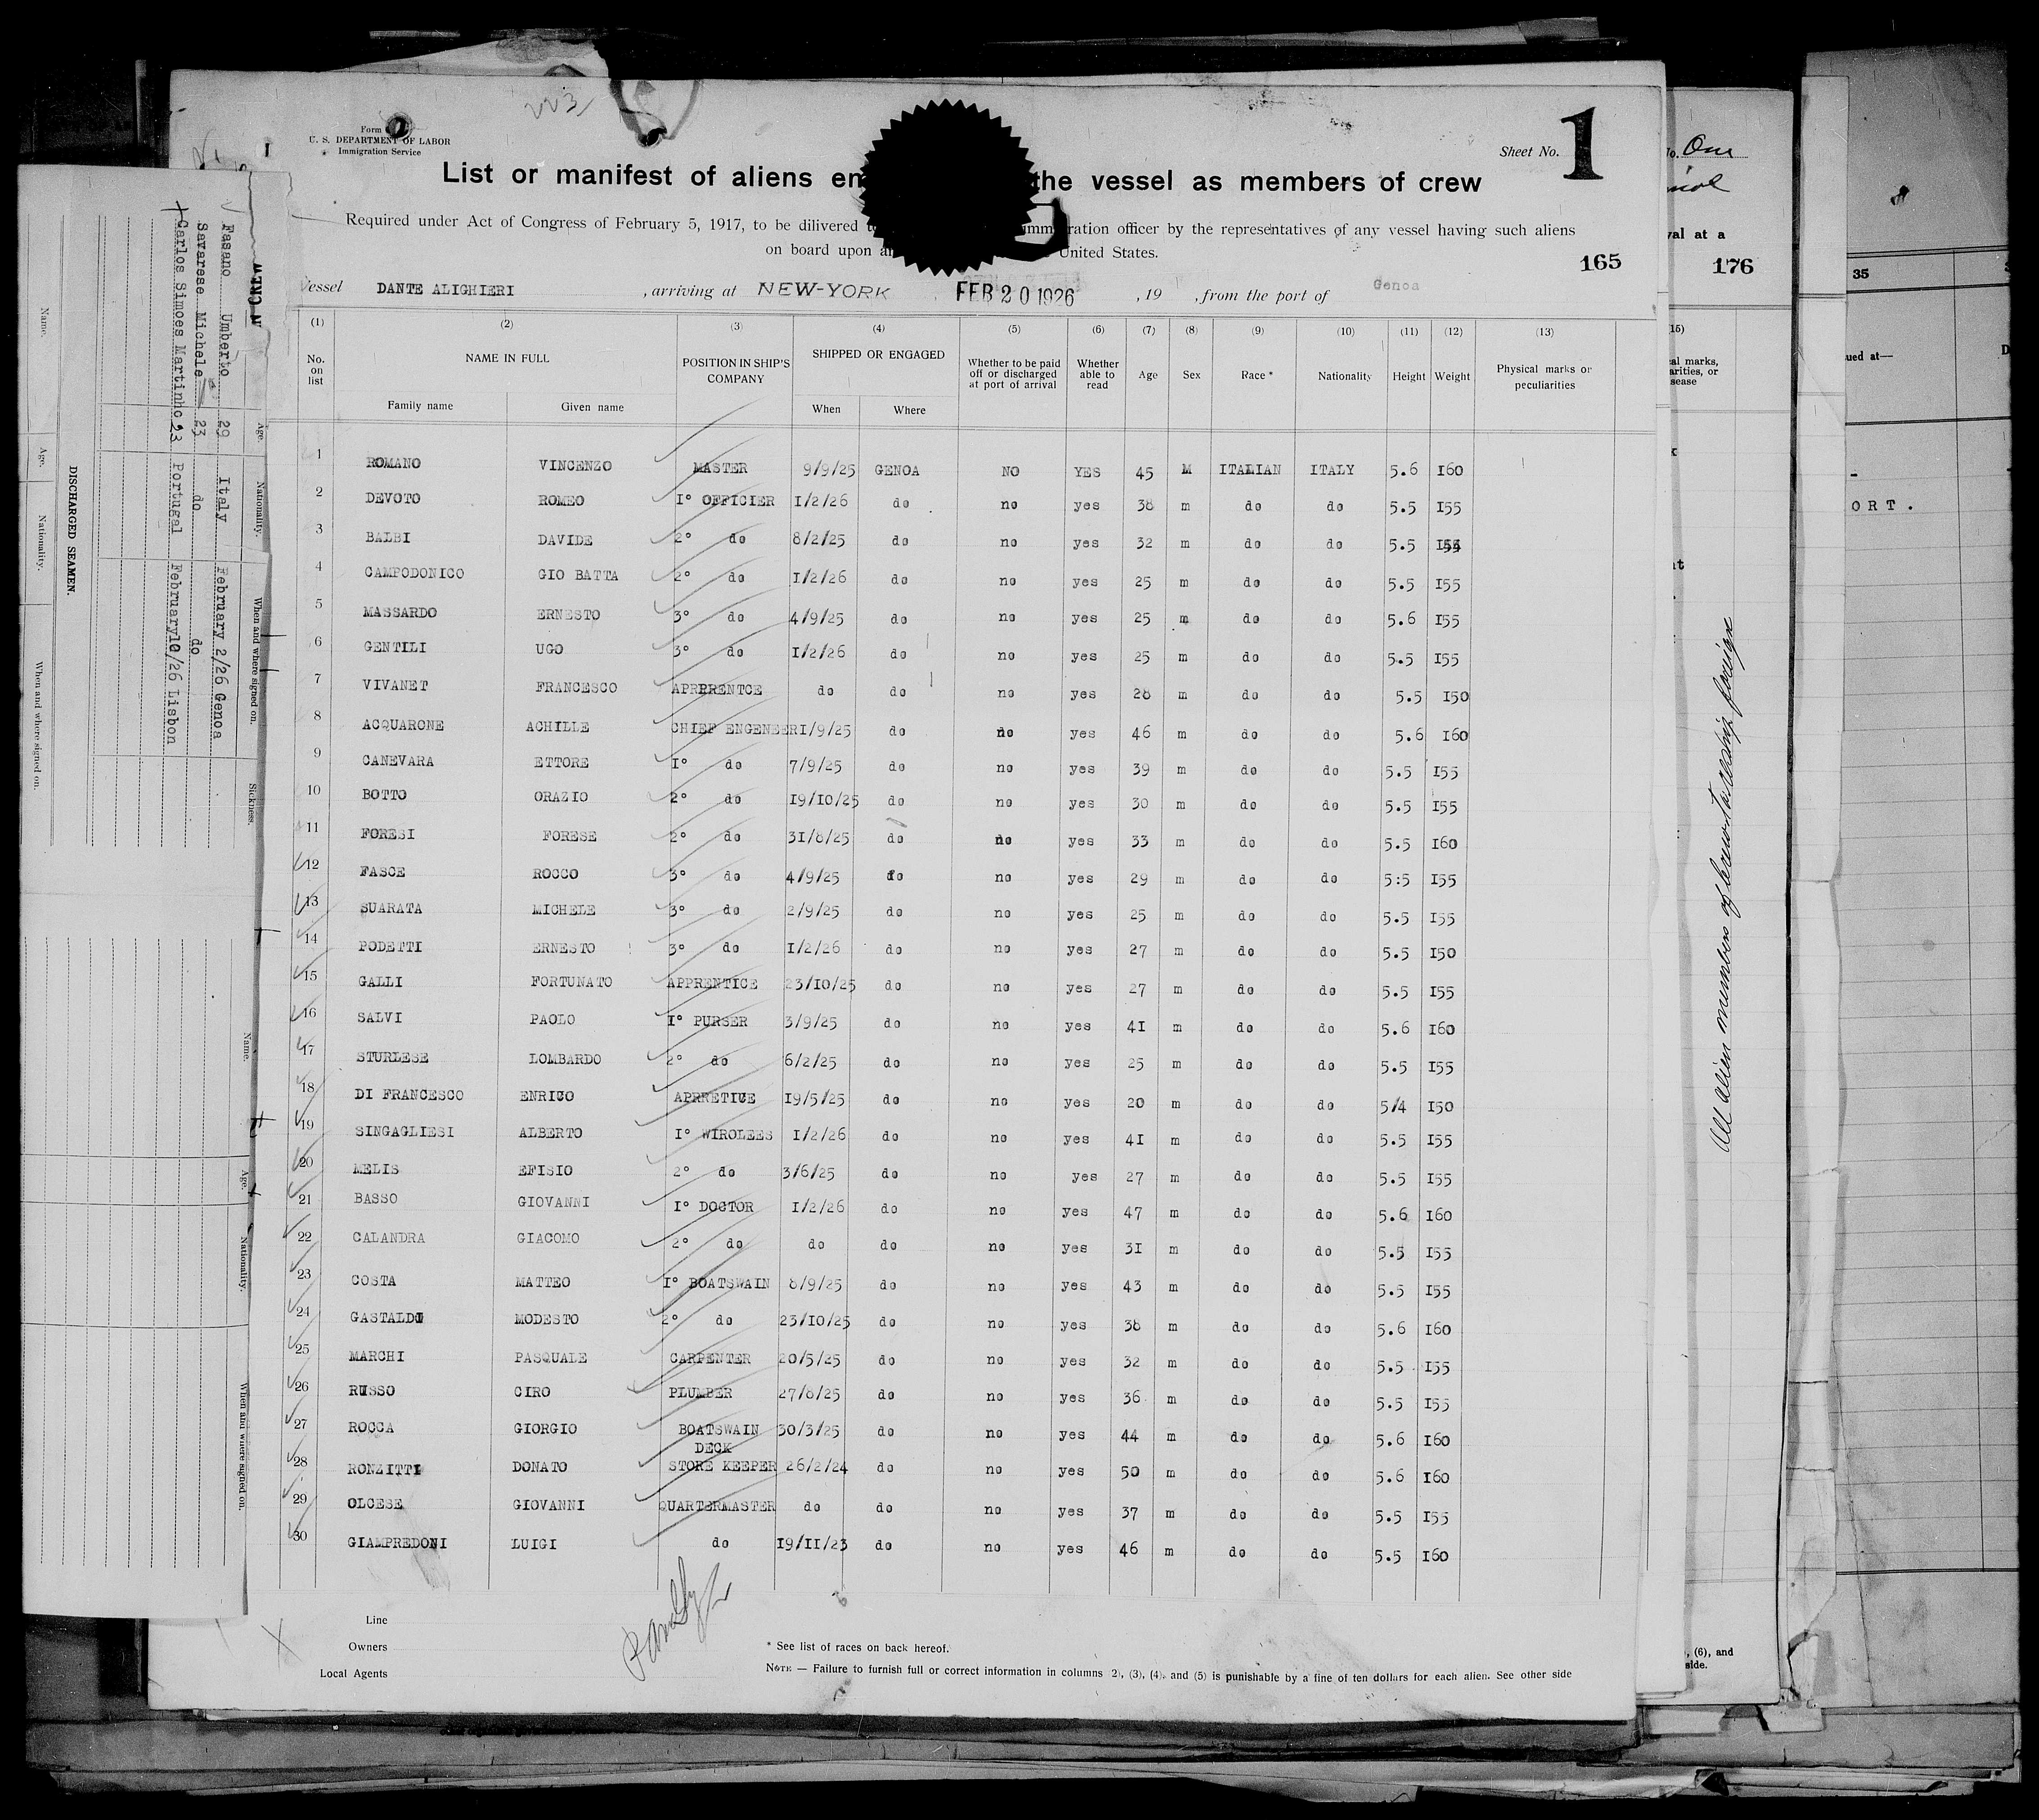 223
Form
U. S. DEPARTMENT OF LABOR
Immigration Service
Sheet No. 1
List or manifest of aliens en the vessel as members of crew
Required under Act of Congress of February 5, 1917, to be dilivered t immigration officer by the representatives of any vessel having such aliens
on board upon ar United States.
165
Vessel DANTE ALIGHIERI , arriving at NEW-YORK FEB 20 1926 , 19 , from the port of Genoa
(1) (2) (3) (4) (5) (6) (7) (8) (9) (10) (11) (12) (13)
No. on list NAME IN FULL POSITION IN SHIP'S COMPANY SHIPPED OR ENGAGED Whether to be paid off or discharged at port of arrival Whether able to read Age Sex Race * Nationality Height Weight Physical marks or peculiarities
Family name Given name When Where
1 ROMANO VINCENZO MASTER 9/9/25 GENOA NO YES 45 M ITALIAN ITALY 5.6 I60
2 DEVOTO ROMEO I° OFFICIER I/2/26 do no yes 38 m do do 5.5 I55
3 BALBI DAVIDE 2° do 8/2/25 do no yes 32 m do do 5.5
4 CAMPODONICO GIO BATTA 2° do I/2/26 do no yes 25 m do do 5.5 I55
5 MASSARDO ERNESTO 3° do 4/9/25 do no yes 25 m do do 5.6 I55
6 GENTILI UGO 3° do I/2/26 do no yes 25 m do do 5.5 I55
7 VIVANET FRANCESCO APRRENTCE do do no yes 28 m do do 5.5 I50
8 ACQUARONE ACHILLE CHIEF ENGENEER I/9/25 do no yes 46 m do do 5.6 I60
9 CANEVARA ETTORE I° do 7/9/25 do no yes 39 m do do 5.5 I55
10 BOTTO ORAZIO 2° do I9/I0/25 do no yes 30 m do do 5.5 I55
11 FORESI FORESE 2° do 3I/8/25 do no yes 33 m do do 5.5 I60
12 FASCE ROCCO 3° do 4/9/25 do no yes 29 m do do 5:5 I55
13 SUARATA MICHELE 3° do 2/9/25 do no yes 25 m do do 5.5 I55
14 PODETTI ERNESTO 3° do I/2/26 do no yes 27 m do do 5.5 I50
15 GALLI FORTUNATO APPRENTICE 23/I0/25 do no yes 27 m do do 5.5 I55
16 SALVI PAOLO I° PURSER 3/9/25 do no yes 4I m do do 5.6 I60
17 STURLESE LOMBARDO 2° do 6/2/25 do no yes 25 m do do 5.5 I55
18 DI FRANCESCO ENRICO APRRETICE I9/5/25 do no yes 20 m do do 5/4 I50
19 SINGAGLIESI ALBERTO I° WIROLEES I/2/26 do no yes 4I m do do 5.5 I55
20 MELIS EFISIO 2° do 3/6/25 do no yes 27 m do do 5.5 I55
21 BASSO GIOVANNI I° DOCTOR I/2/26 do no yes 47 m do do 5.6 I60
22 CALANDRA GIACOMO 2° do do do no yes 3I m do do 5.5 I55
23 COSTA MATTEO I° BOATSWAIN 8/9/25 do no yes 43 m do do 5.5 I55
24 GASTALDI MODESTO 2° do 23/I0/25 do no yes 38 m do do 5.6 I60
25 MARCHI PASQUALE CARPENTER 20/5/25 do no yes 32 m do do 5.5 I55
26 RUSSO CIRO PLUMBER 27/8/25 do no yes 36 m do do 5.5 I55
27 ROCCA GIORGIO BOATSWAIN 30/3/25 do no yes 44 m do do 5.6 I60
DECK
28 RONZITTI DONATO STORE KEEPER 26/2/24 do no yes 50 m do do 5.6 I60
29 OLCESE GIOVANNI QUARTERMASTER do do no yes 37 m do do 5.5 I55
30 GIAMPREDONI LUIGI do I9/II/23 do no yes 46 m do do 5.5 I60
Line
Owners
Local Agents
* See list of races on back hereof.
NOTE — Failure to furnish full or correct information in columns 2), (3), (4), and (5) is punishable by a fine of ten dollars for each alien. See other side
N CREW
Age. Nationality. When and where signed on. Sickness.
Fasano Umberto 29 Italy February 2/26 Genoa
Savarese Michele 23 do do
Carlos Simoes Martinho 23 Portugal February10/26 Lisbon
DISCHARGED SEAMEN.
Name. Age. Nationality. When and where signed on.
Name. Age. Nationality. When and where signed on.
No. One
val at a
176
15)
al marks,
arities, or
sease
All alien members of crew
, (6), and
side.
35
ued at—
ORT.